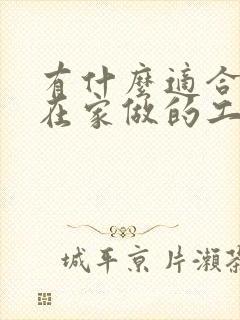 有什麼適合
在家做的工
城平京 片瀨茶